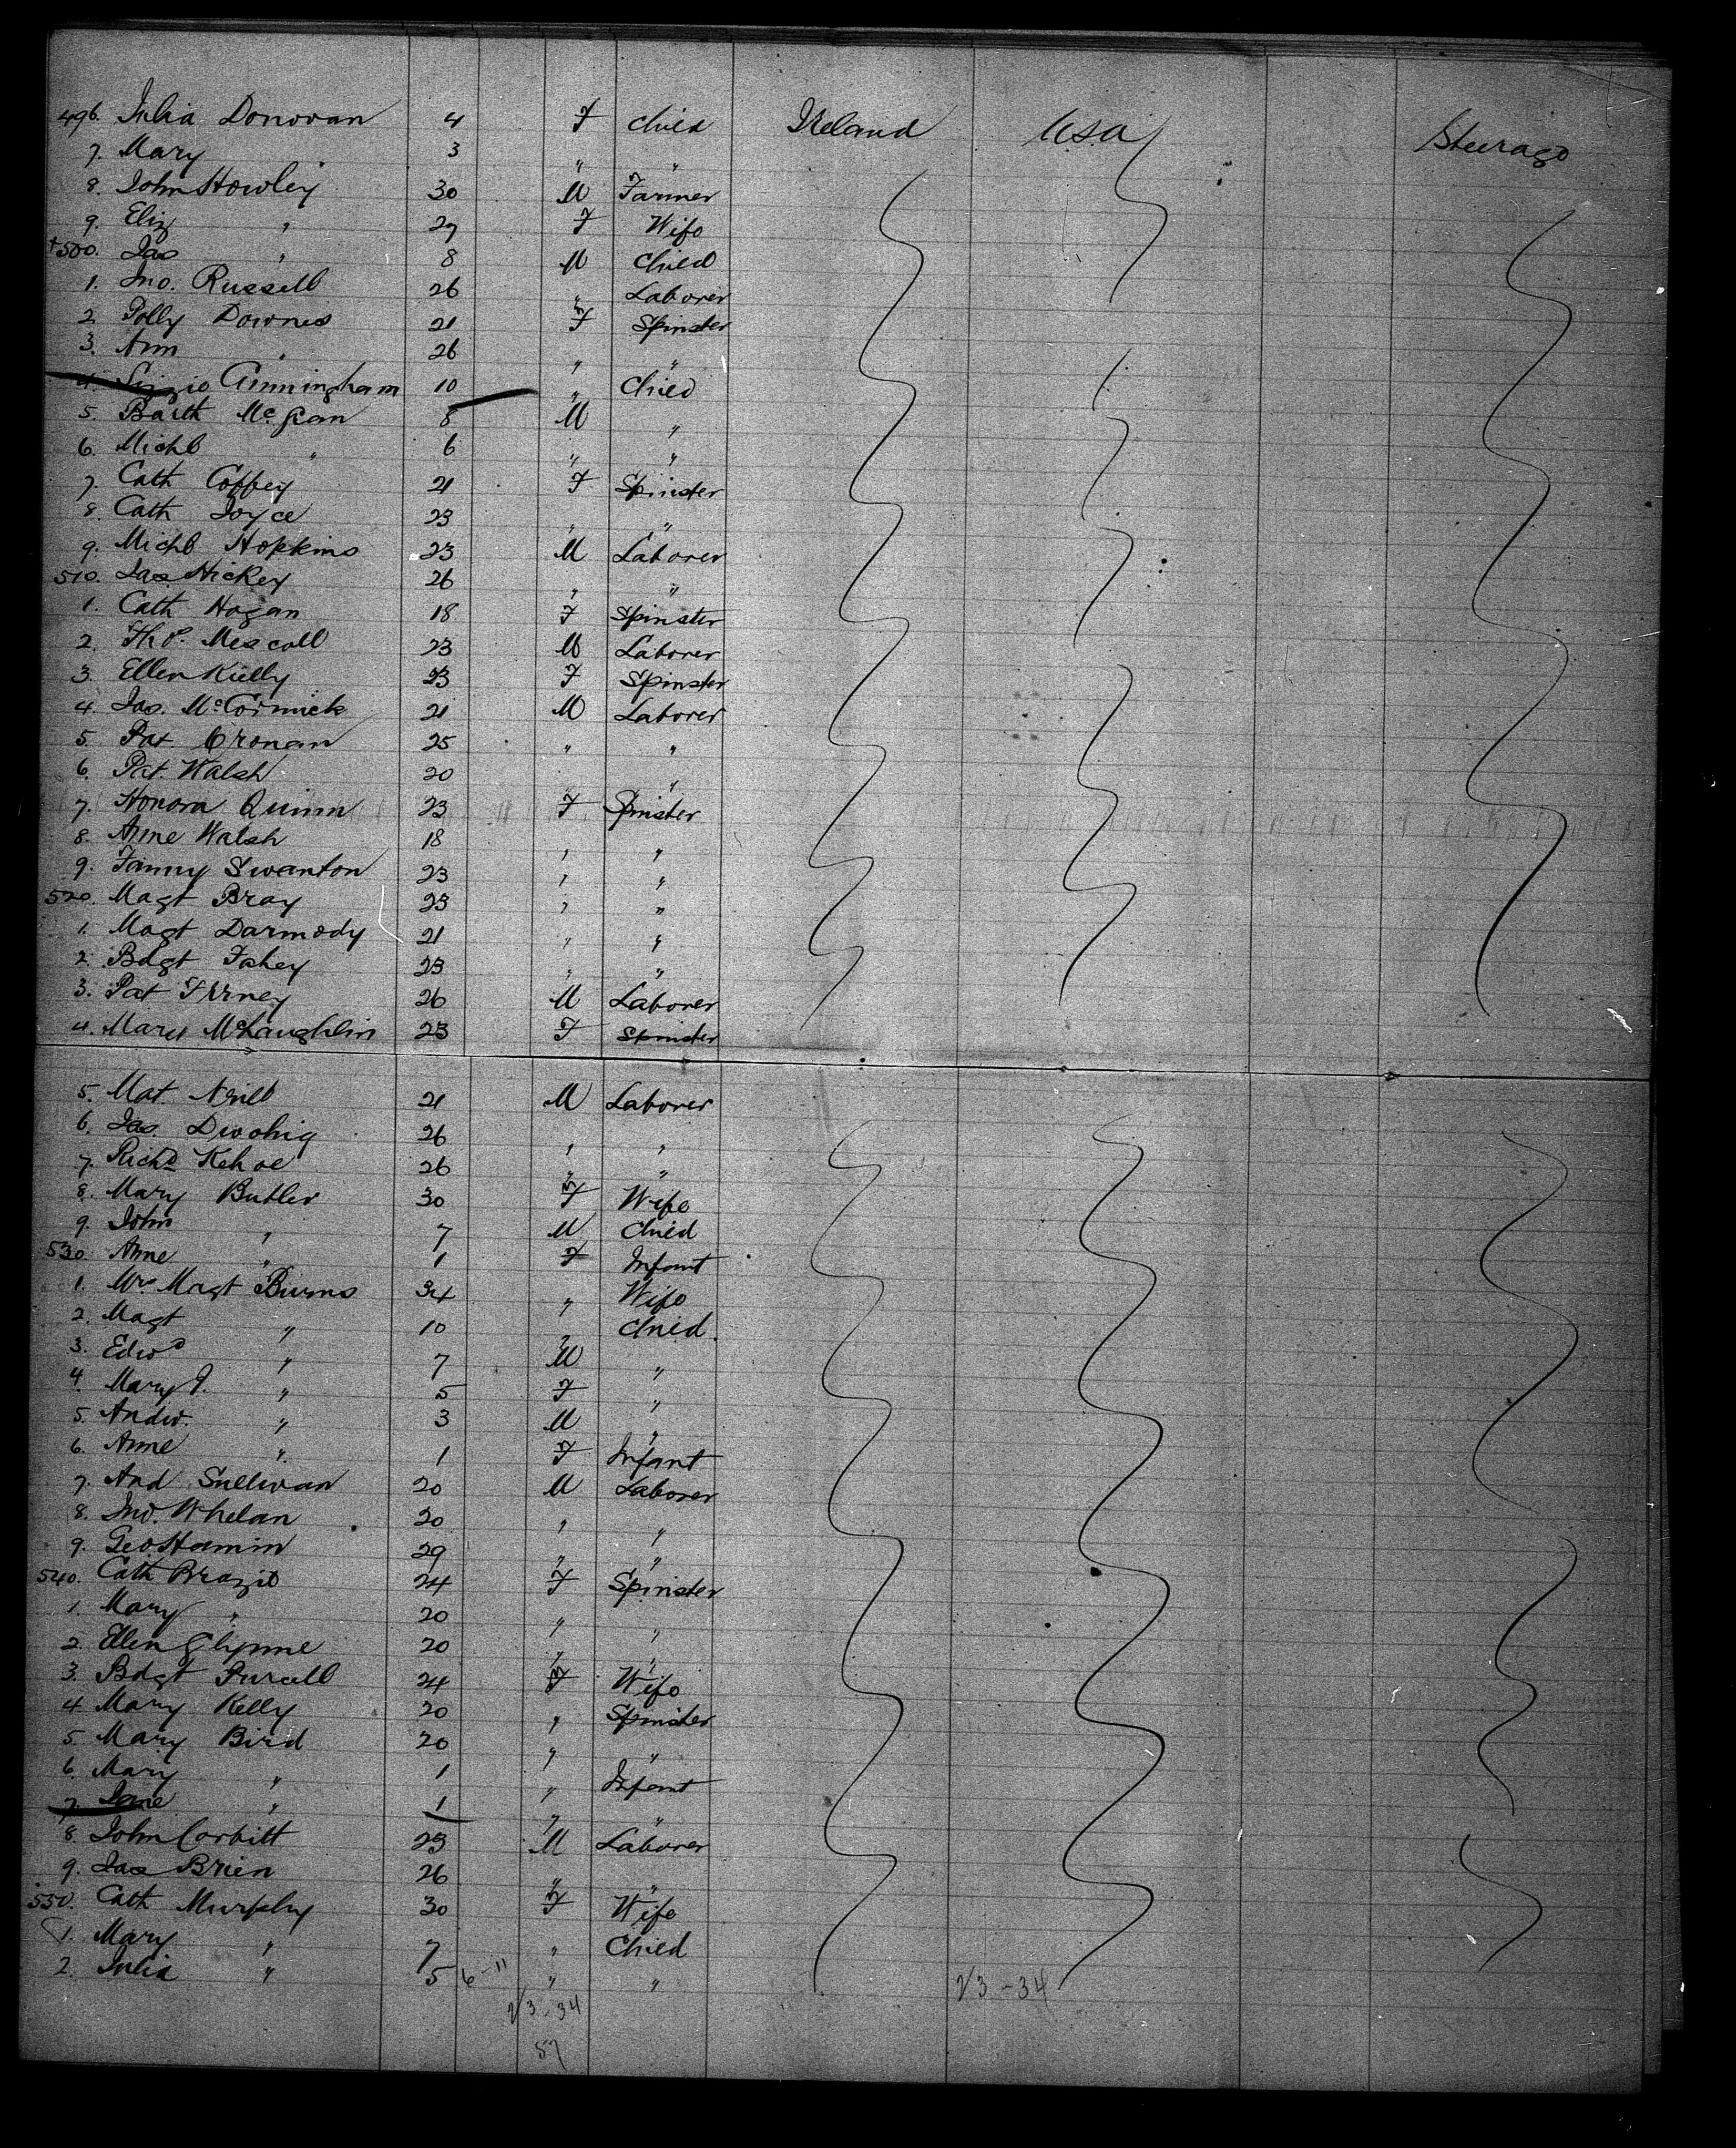 496. Julia Donovan 4 F Child Ireland USA Steerage
7. Mary 3 " "
8. John Howley 30 M Farmer
9. Eliz " 29 F Wife
+500. Jas " 8 M Child
1. Jno. Russell 26 " Laborer
2 Polly Downes 21 F Spinster
3. Ann " 26 " "
4. Lizzie Cunningham 10 " Child
5. Barth McGan 8 M "
6. Michl " 6 " "
7. Cath Coffey 21 F Spinster
8. Cath Joyce 23 " "
9. Michl Hopkins 23 M Laborer
510. Jas. Hickey 26 " "
1. Cath Hogan 18 F Spinster
2. Thos. Mescall 23 M Laborer
3. Ellen Kielly 23 F Spinster
4. Jas. McCormick 21 M Laborer
5. Pat Cronan 25 " "
6. Pat Walsh 20 " "
7. Honora Quinn 23 F Spinster
8. Anne Walsh 18 " "
9. Fanny Swanton 23 " "
520. Magt Bray 23 " "
1. Magt Darmody 21 " "
2. Bdgt Fahey 23 " "
3. Pat 26 M Laborer
4. Mary McLaughlin 23 F Spinster
5. Mat Neill 21 M Laborer
6. Jas. Dwohig 26 " "
7. Richd Kehoe 26 " "
8. Mary Butler 30 F Wife
9. John " 7 M Child
530. Anne " 1 F Infant
1. Mrs Magt Burns 34 " Wife
2. Magt " 10 " Child.
3. Edwd " 7 M "
4. Mary J. " 5 F "
5. Andw. " 3 M "
6. Anne " 1 F Infant
7. And Sullivan 20 M Laborer
8. Jno. Whelan 20 " "
9. Geo Hamin 29 " "
540. Cath Brazil 24 F Spinster
1. Mary " 20 " "
2. Ellen Glynne 20 " "
3. Bdgt Purcell 24 F Wife
4 Mary Kelly 20 " Spinster
5. Mary Bird 20 " "
6. Mary " 1 " Infant
7. Jane " 1 " "
8. John Corbitt 23 M Laborer
9. Jas Brien 26 " "
550. Cath Murphy 30 F Wife
1. Mary " 7 " Child
2. Julia " 5 6-11 " "
23-34 23-34
57